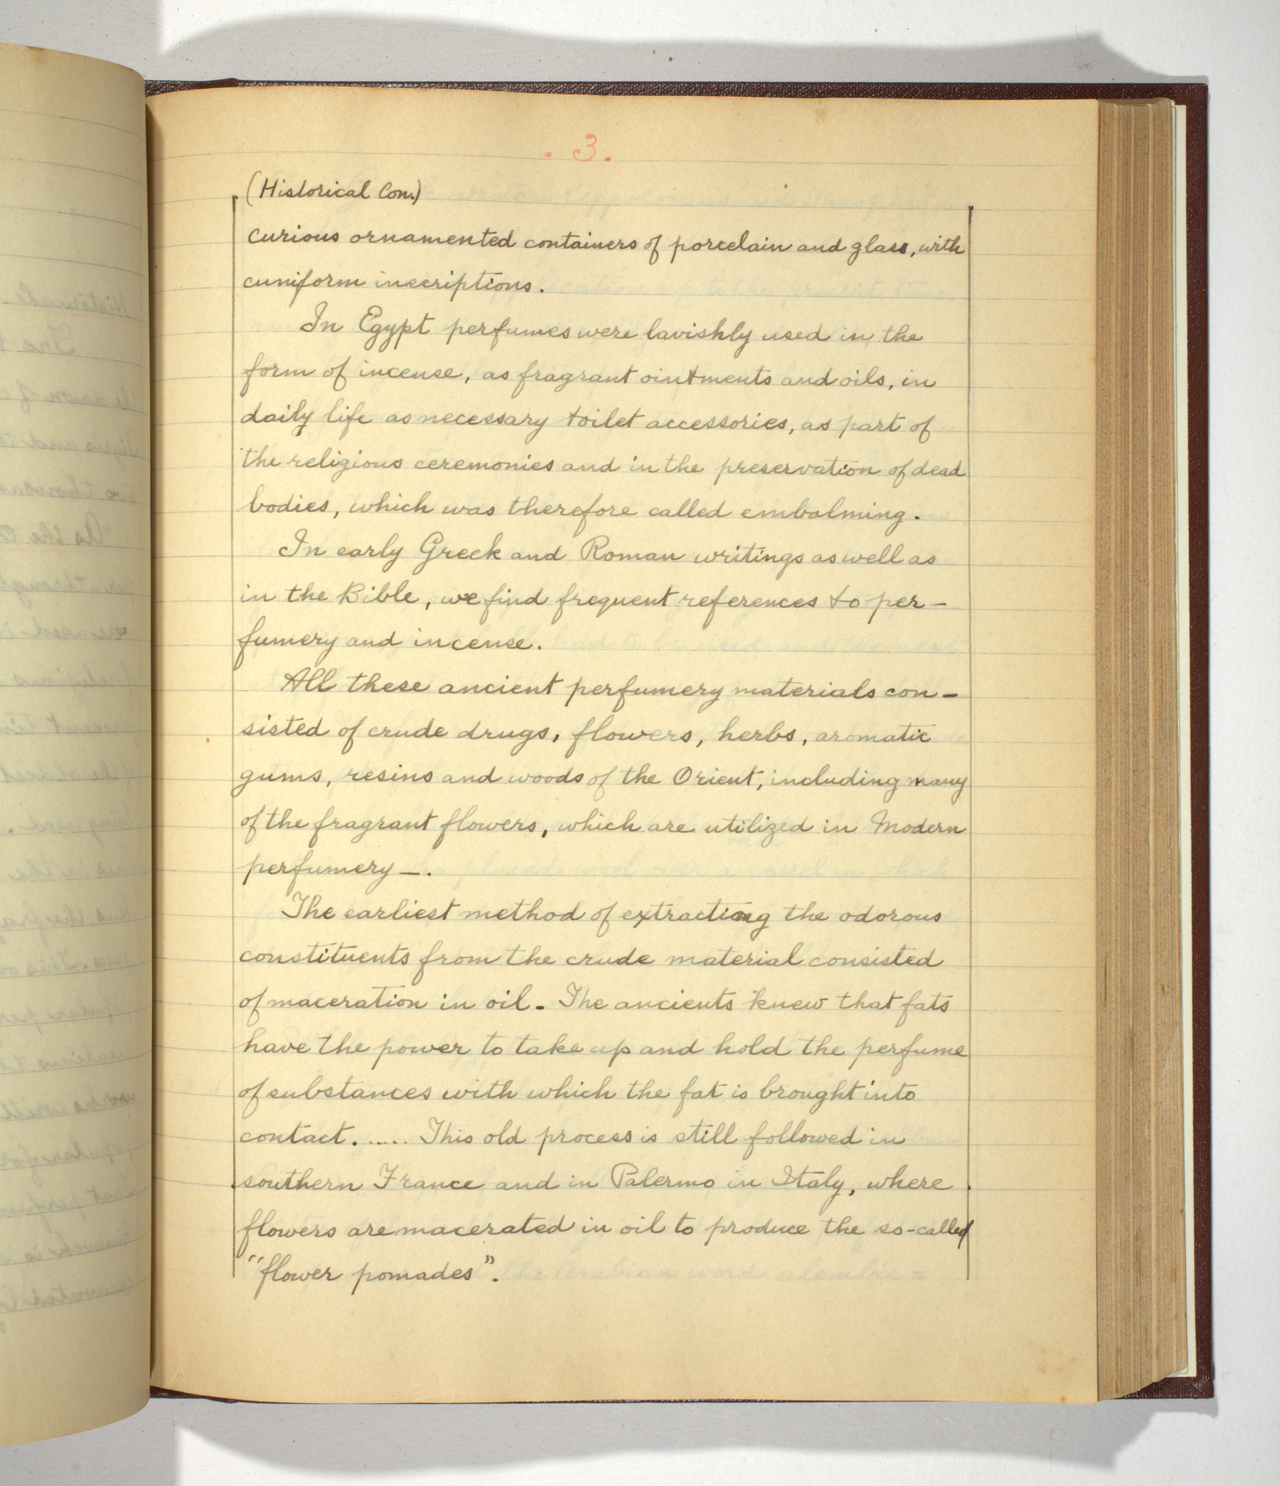 . 3.
(Historical Con.)
curious ornamented containers of porcelain and glass, with
cuniform inscriptions.
In Egypt perfumes were lavishly used in the
form of incense, as fragrant ointments and oils, in
daily life as necessary toilet accessories, as part of
the religious ceremonies and in the preservation of dead
bodies, which was therefore called embalming.
In early Greek and Roman writings as well as
in the Bible, we find frequent references to per-
fumery and incense.
All these ancient perfumery materials con-
sisted of crude drugs, flowers, herbs, aromatic
gums, resins and woods of the Orient, including many
of the fragrant flowers, which are utilized in Modern
perfumery —.
The earliest method of extracting the odorous
constituents from the crude material consisted
of maceration in oil. The ancients knew that fats
have the power to take up and hold the perfume
of substances with which the fat is brought into
contact. ..... This old process is still followed in
southern France and in Palermo in Italy, where
flowers are macerated in oil to produce the so-called
"flower pomades".